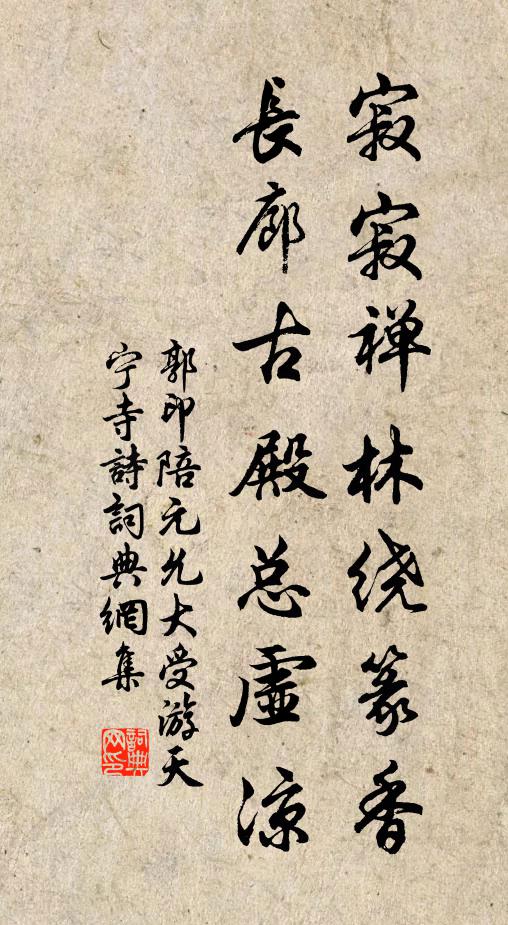 寂寂禅林绕篆香
長廊古殿总虛凉
郭印陪元允大受游天
宁寺詩詞典網集
詞典網印